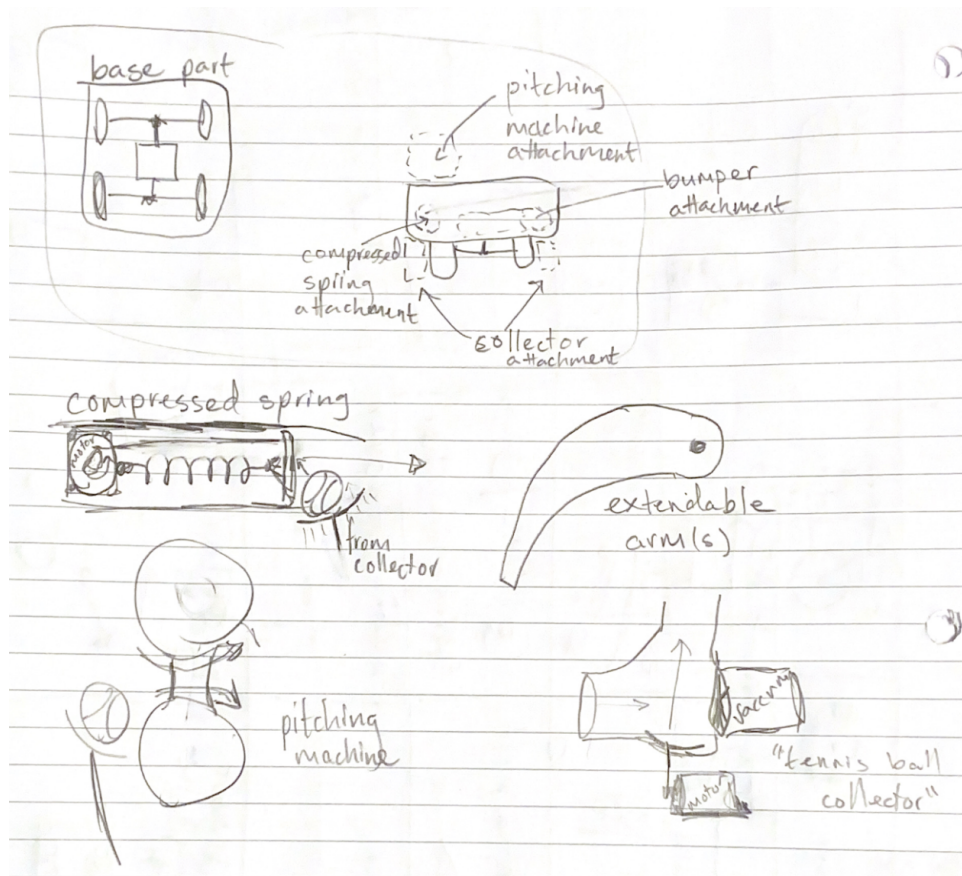 base part
pitching
machine
attachment
bumper
attachment
compressed
spring
attachment
collector
attachment
compressed spring
motor
from
collector
extendable
arm(s)
pitching
machine
vacuum
motor
"tennis ball
collector"